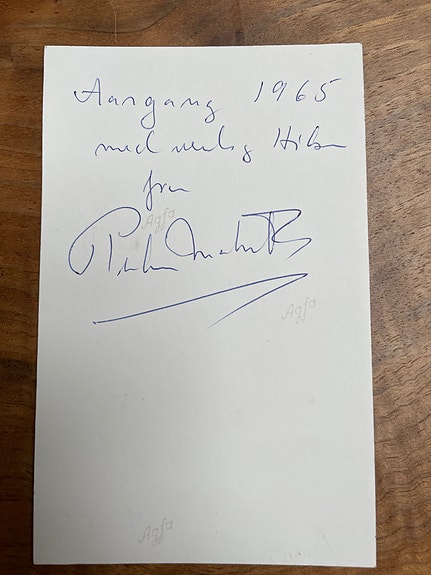 Aargang 1965
med venlig Hilsen
fra
Agfa
Agfa
Agfa